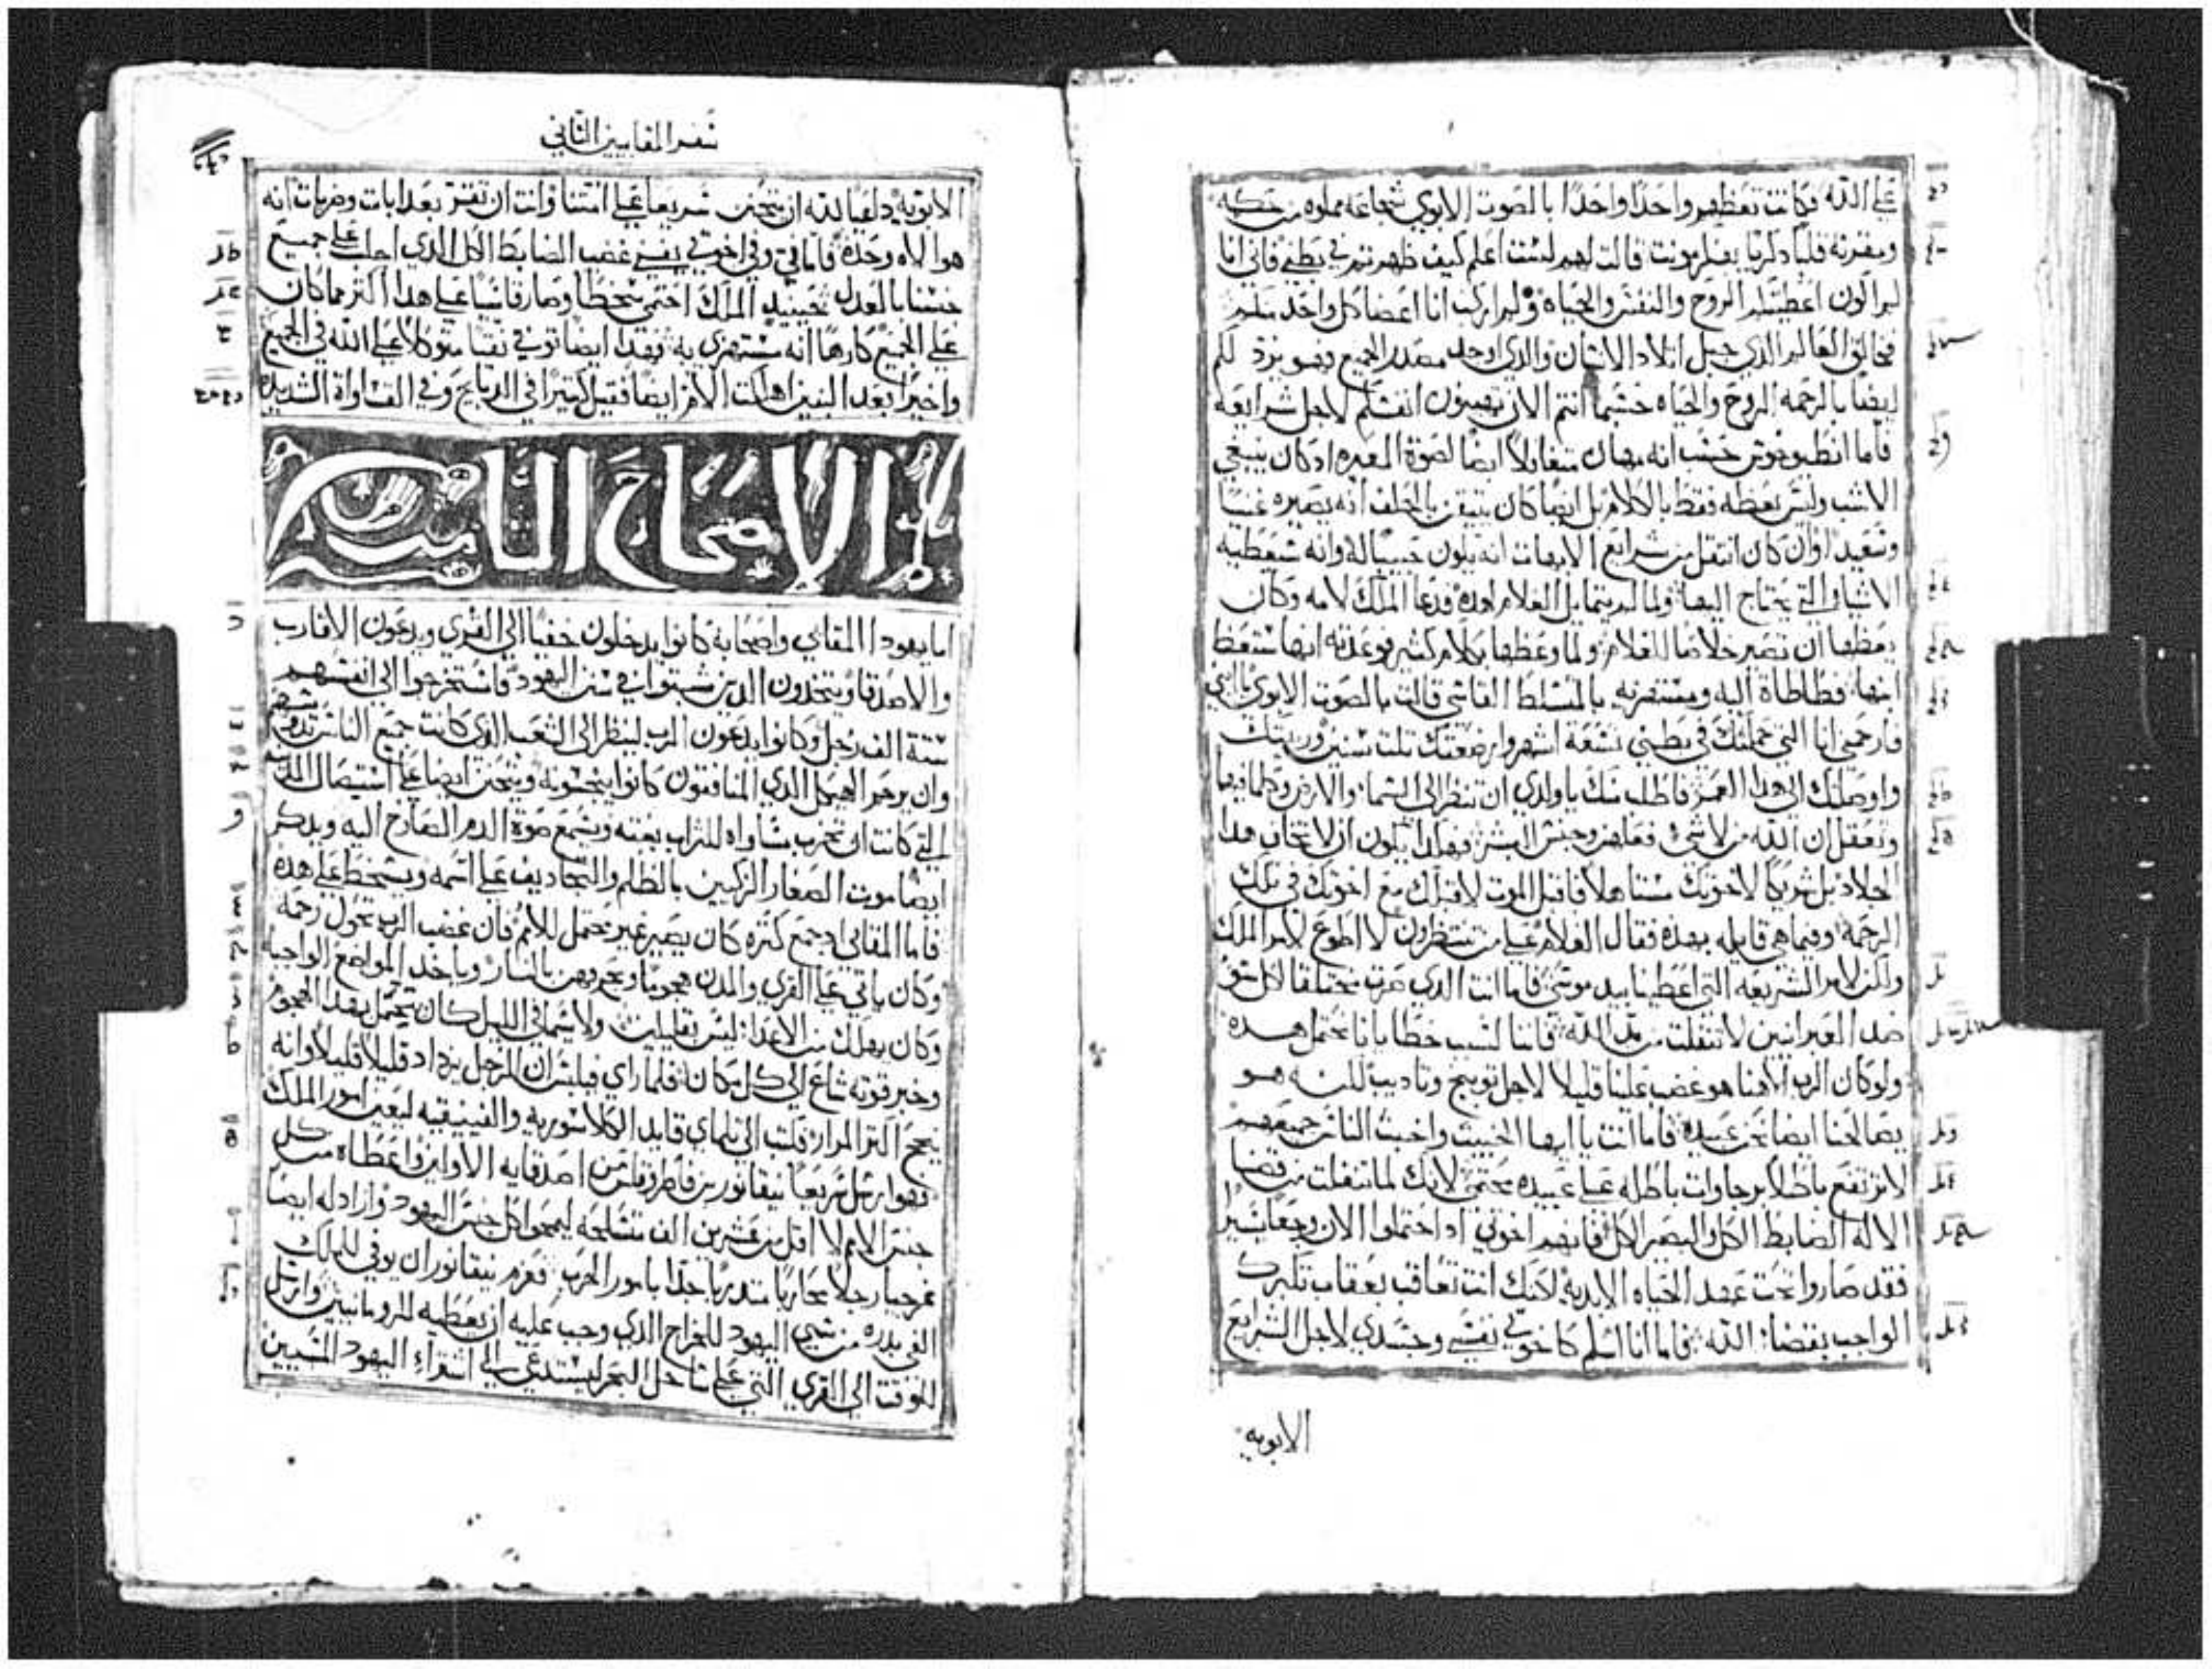 على الله فكانت تعظهم واحدًا واحدًا بالصوت الابوي شجاعه مملوه من حكمه
قالت لهم لست اعلم كيف ظهرتم في بطني فاني انا
اعطيتكم الروح والنفس والحياة انا اعضا كل واحد
العالم الذي جبل اتلاد الانسان والذي اوجد مصدر الجميع فهو يرد لكم
ايضا بالرحمه الروح والحياه حسبما انتم الان انفسكم لاجل شرايعه
فاما انطيوخوس حسب انه مهان ايضا لصوة اد كان يبقي
وليس يعظه فقط بالكلام بل ايضا كان بالحلف انه يصيره غنيا
وسعيدا وان كان انتقل من شرايع الابهات انه يكون حبيبا له وانه سيعطيه
الاشيا التي يحتاج اليها ولما لم يتمايل الغلام لهده فدعا الملك لامه وكان
يعظها ان تصير خلاصا للغلام ولما وعظها بكلام كثير فوعدته انها ستعظ
ابنها فطاطاة اليه ومستهزيه بالمسلط القاسي قالت بالصوت الابوي يا ابني
فارحمني انا التي حملتك في بطني تسعة اشهر وارضعتك تلت سنين وربيتك
واوصلتك الى هدا العمر فاطلب منك ياولدي ان تنظر الى السما والارض وكلما فيها
وتعقل ان الله من لاشي فعلهم وجنس البشر فهكدا يكون ان لا تخاف هدا
الجلاد بل شريكا لاخوتك مستاهلا فاقبل الموت لاقبلك مع اخوتك في تلك
الرحمة وفيما هي قايله بهده فقال الغلام على من تنتظرون لا اطوع لامر الملك
ولكن لامر الشريعه التي اعطيناها بيد موسى فاما انت الدي صرت مختلقا لكل سو
ضد العبرانيين لا تنفلت من يد الله فاننا لسبب خطايانا نحتمل هده
ولو كان الرب الاهنا هو غضب علينا قليلا لاجل توبيخ وتاديب لكنه هو
يصالحنا ايضا نحن عبيده فاما انت يا ايها الخبيث واخبث الناس جميعهم
لا ترتفع باطلا برجاوات باطله على عبيده محتمى لانك لما تنفلت من قضا
الاله الضابط الكل والبصير الكل فانهم اخوتي اد احتملوا الان وجعا يسيرا
فقد صاروا تحت عهد الحياه الابديه لكنك انت تعاقب بعقاب تكبرك
الواجب بقضا الله فاما انا اسلم كاخوتي نفسي وجسدي لاجل الشرايع
الابويه
سفر المقابيين التاني
الابويه داعيا لله ان يتحنن سريعا على امتنا وانت ان تقر بعدابات وضربات انه
هو الاه وحده فاما في وفي اخوتي يفنى غضب الضابط الكل الدي احل على جميع
جنسنا بالعدل فحينيد الملك احتمى سخطا وصار قاسيا على هدا اكتر مما كان
على الجميع كارها انه يستهزي به فهدا ايضا توفي نقيا متوكلا على الله في الجميع
واخيرا بعد البنين اهلكت الام ايضا فقيل كتيرا في الدبايح وفي القساواة الشديده
الاصحاح التامن
اما يهودا المقابي واصحابه كانوا يدخلون خفيا الى القرى ويدعون الاقارب
والاصدقا ويتخدون الدين ثبتوا في سنن اليهود فاستخرجوا الى انفسهم
ستة الف رجل وكانوا يدعون الرب لينظر الى الشعب الدي كانت جميع الناس تدوسه
وان يرحم الهيكل الدي المنافقون كانوا ينجسونه ويتحنن ايضا على استيصال المدينه
التي كانت ان تخرب مساواه للتراب بغته ويسمع صوة الدم الصارخ اليه ويدكر
ايضا موت الصغار الزكيين بالظلم والتجاديف على اسمه ويسخط على هده
فاما المقابي اد جمع كتره كان يصير غير محتمل للامم فان غضب الرب تحول رحمه
وكان ياتي على القري والمدن هجوما ويحرقهن بالنار وياخد المواضع الواجبه
وكان يهلك من الاعدا ليس بقليلت ولا سيما في الليل كان يتحمل بهدا الهجوم
وخبر قوته شاع الى كل مكان فلما راي فيلبس ان الرجل يزداد قليلا قليلا وانه
ينجح اكتر المرار فكتب الى تلماي قايد الكلاسوريه والفينيقيه ليعين امور الملك
فهو ارسل سريعا نيقانور بن فاطروقلس من اصدقايه الاولين واعطاه من كل
جنس الامم لا اقل من عشرين الف متسلحه ليمحوا كل جنس اليهود وازاد له ايضا
غرجيا رجلا محاربا متدربا جدا بامور الحرب فعزم نيقانور ان يوفي للملك
الفي بدره من سبي اليهود للخراج الدي وجب عليه ان يعطيه للرومانيين وارسل
للوقت الى القري التي على ساحل البحر ليستدعي الى اشتراء اليهود المسبيين